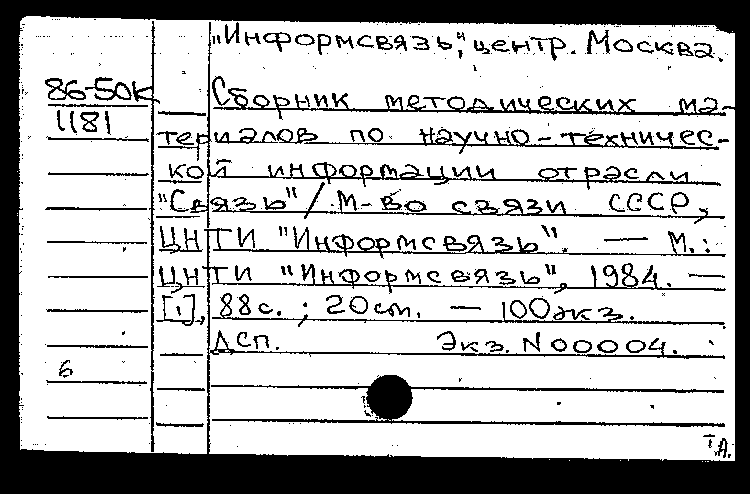 "Информсвязь", центр. Москва.
86-50к Сборник методических ма-
1181 териалов по научно-техничес-
кой информации отрасли
"Связь" / М-во связи СССР,
ЦНТИ "Информсвязь". — М.:
ЦНТИ "Информсвязь", 1984. —
[1], 88с. ; 20см. — 100экз.
ДСП. Экз. N 00004.
6
Т.А.